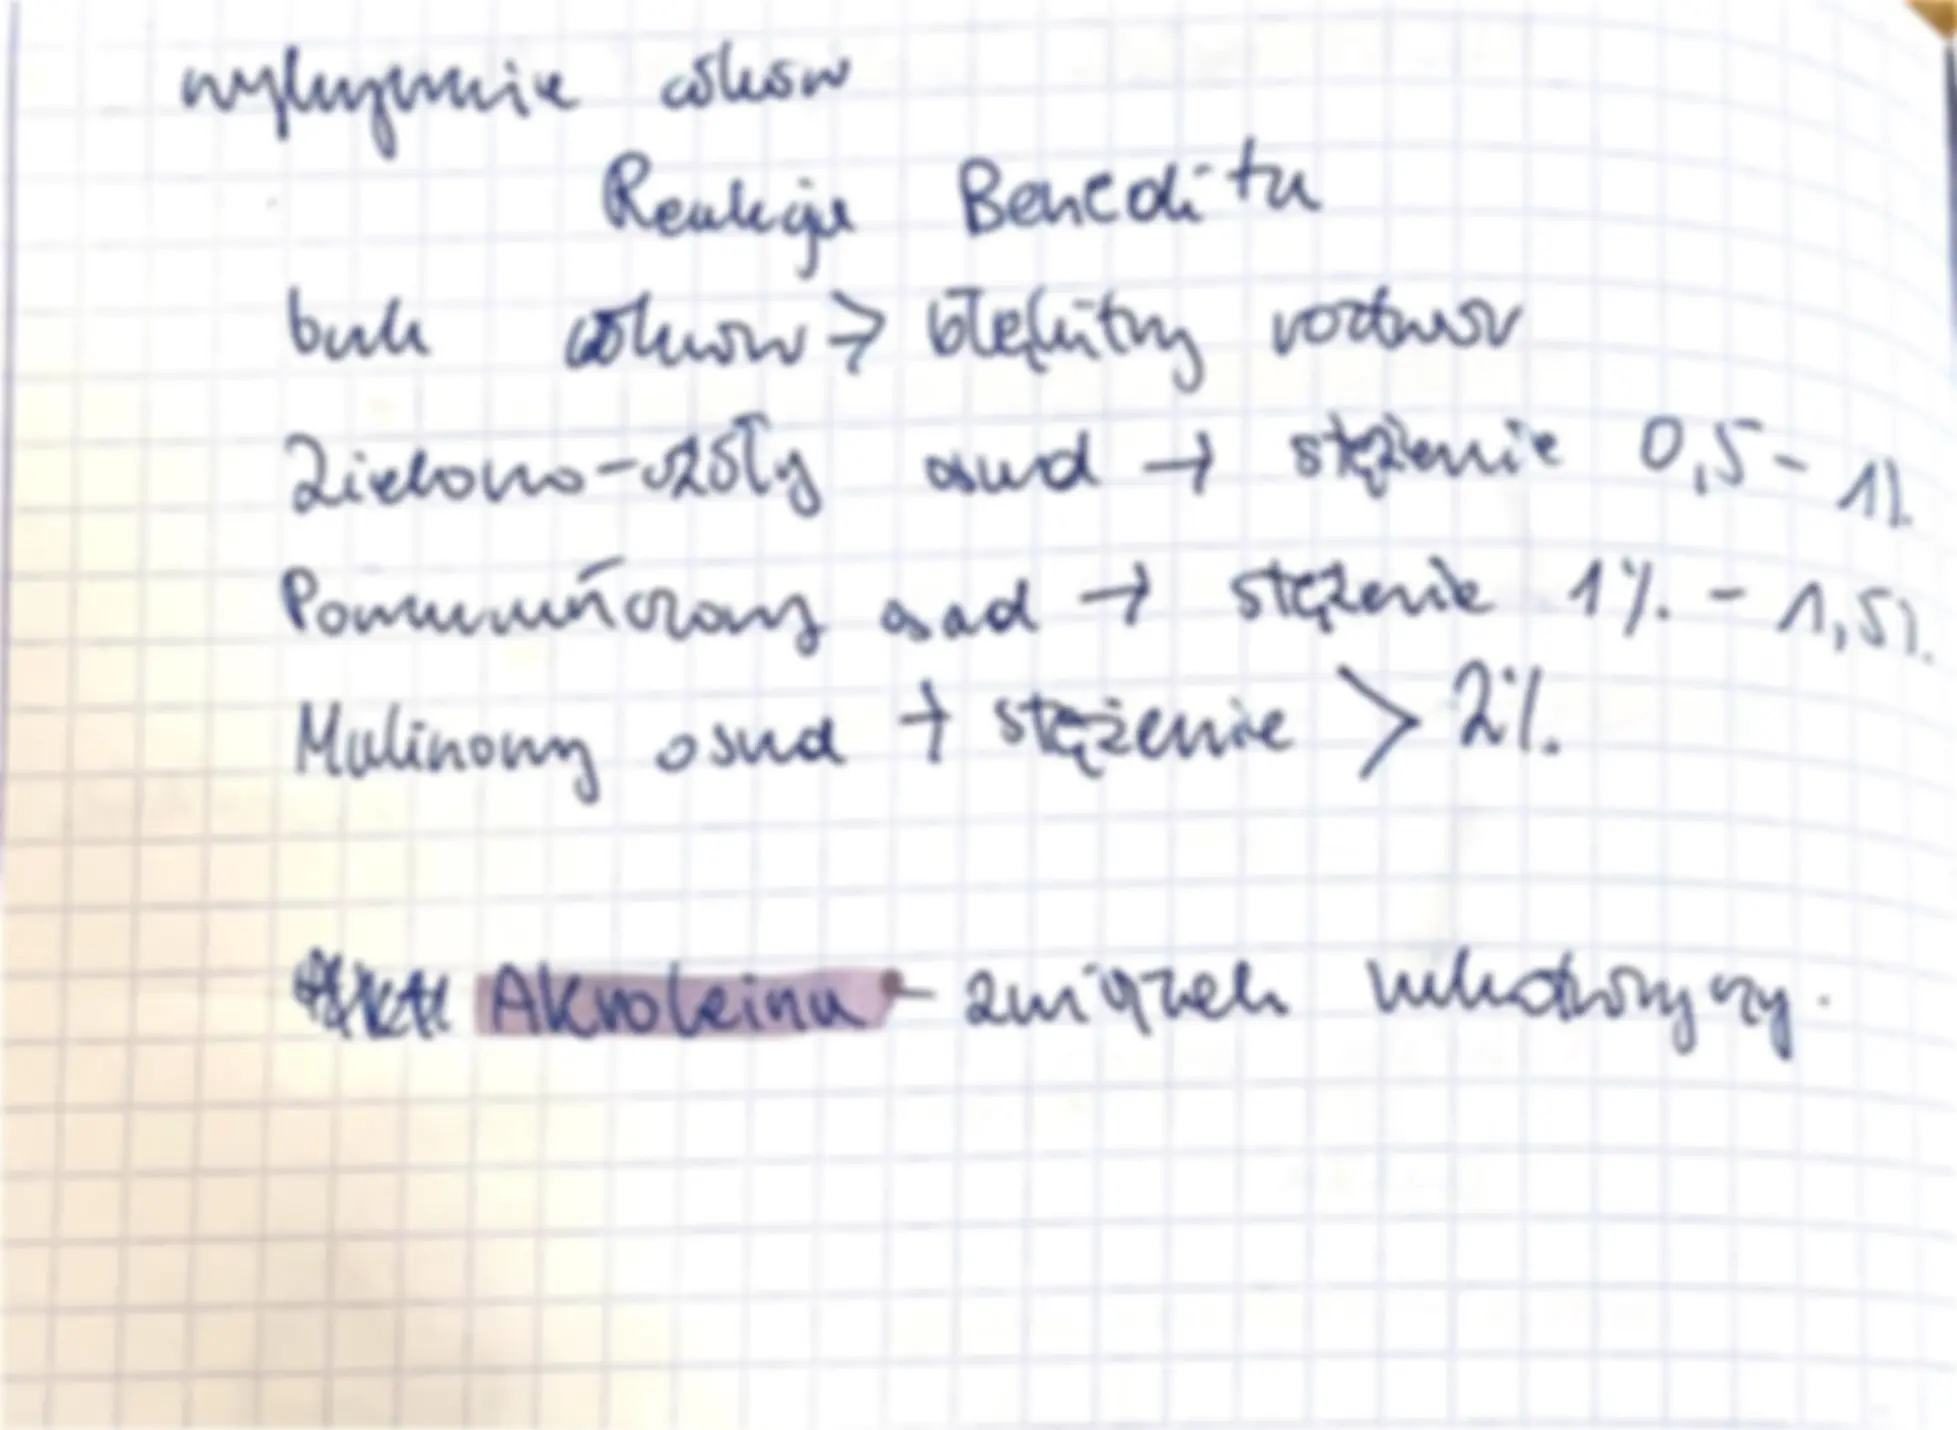 wykrywanie cukrów
Reakcja Benedicta
brak cukrów → błękitny roztwór
Zielono-żółty osad → stężenie 0,5 - 1%
Pomarańczowy osad → stężenie 1% - 1,5%
Malinowy osad → stężenie > 2%
Akroleina - związek rakotwórczy.